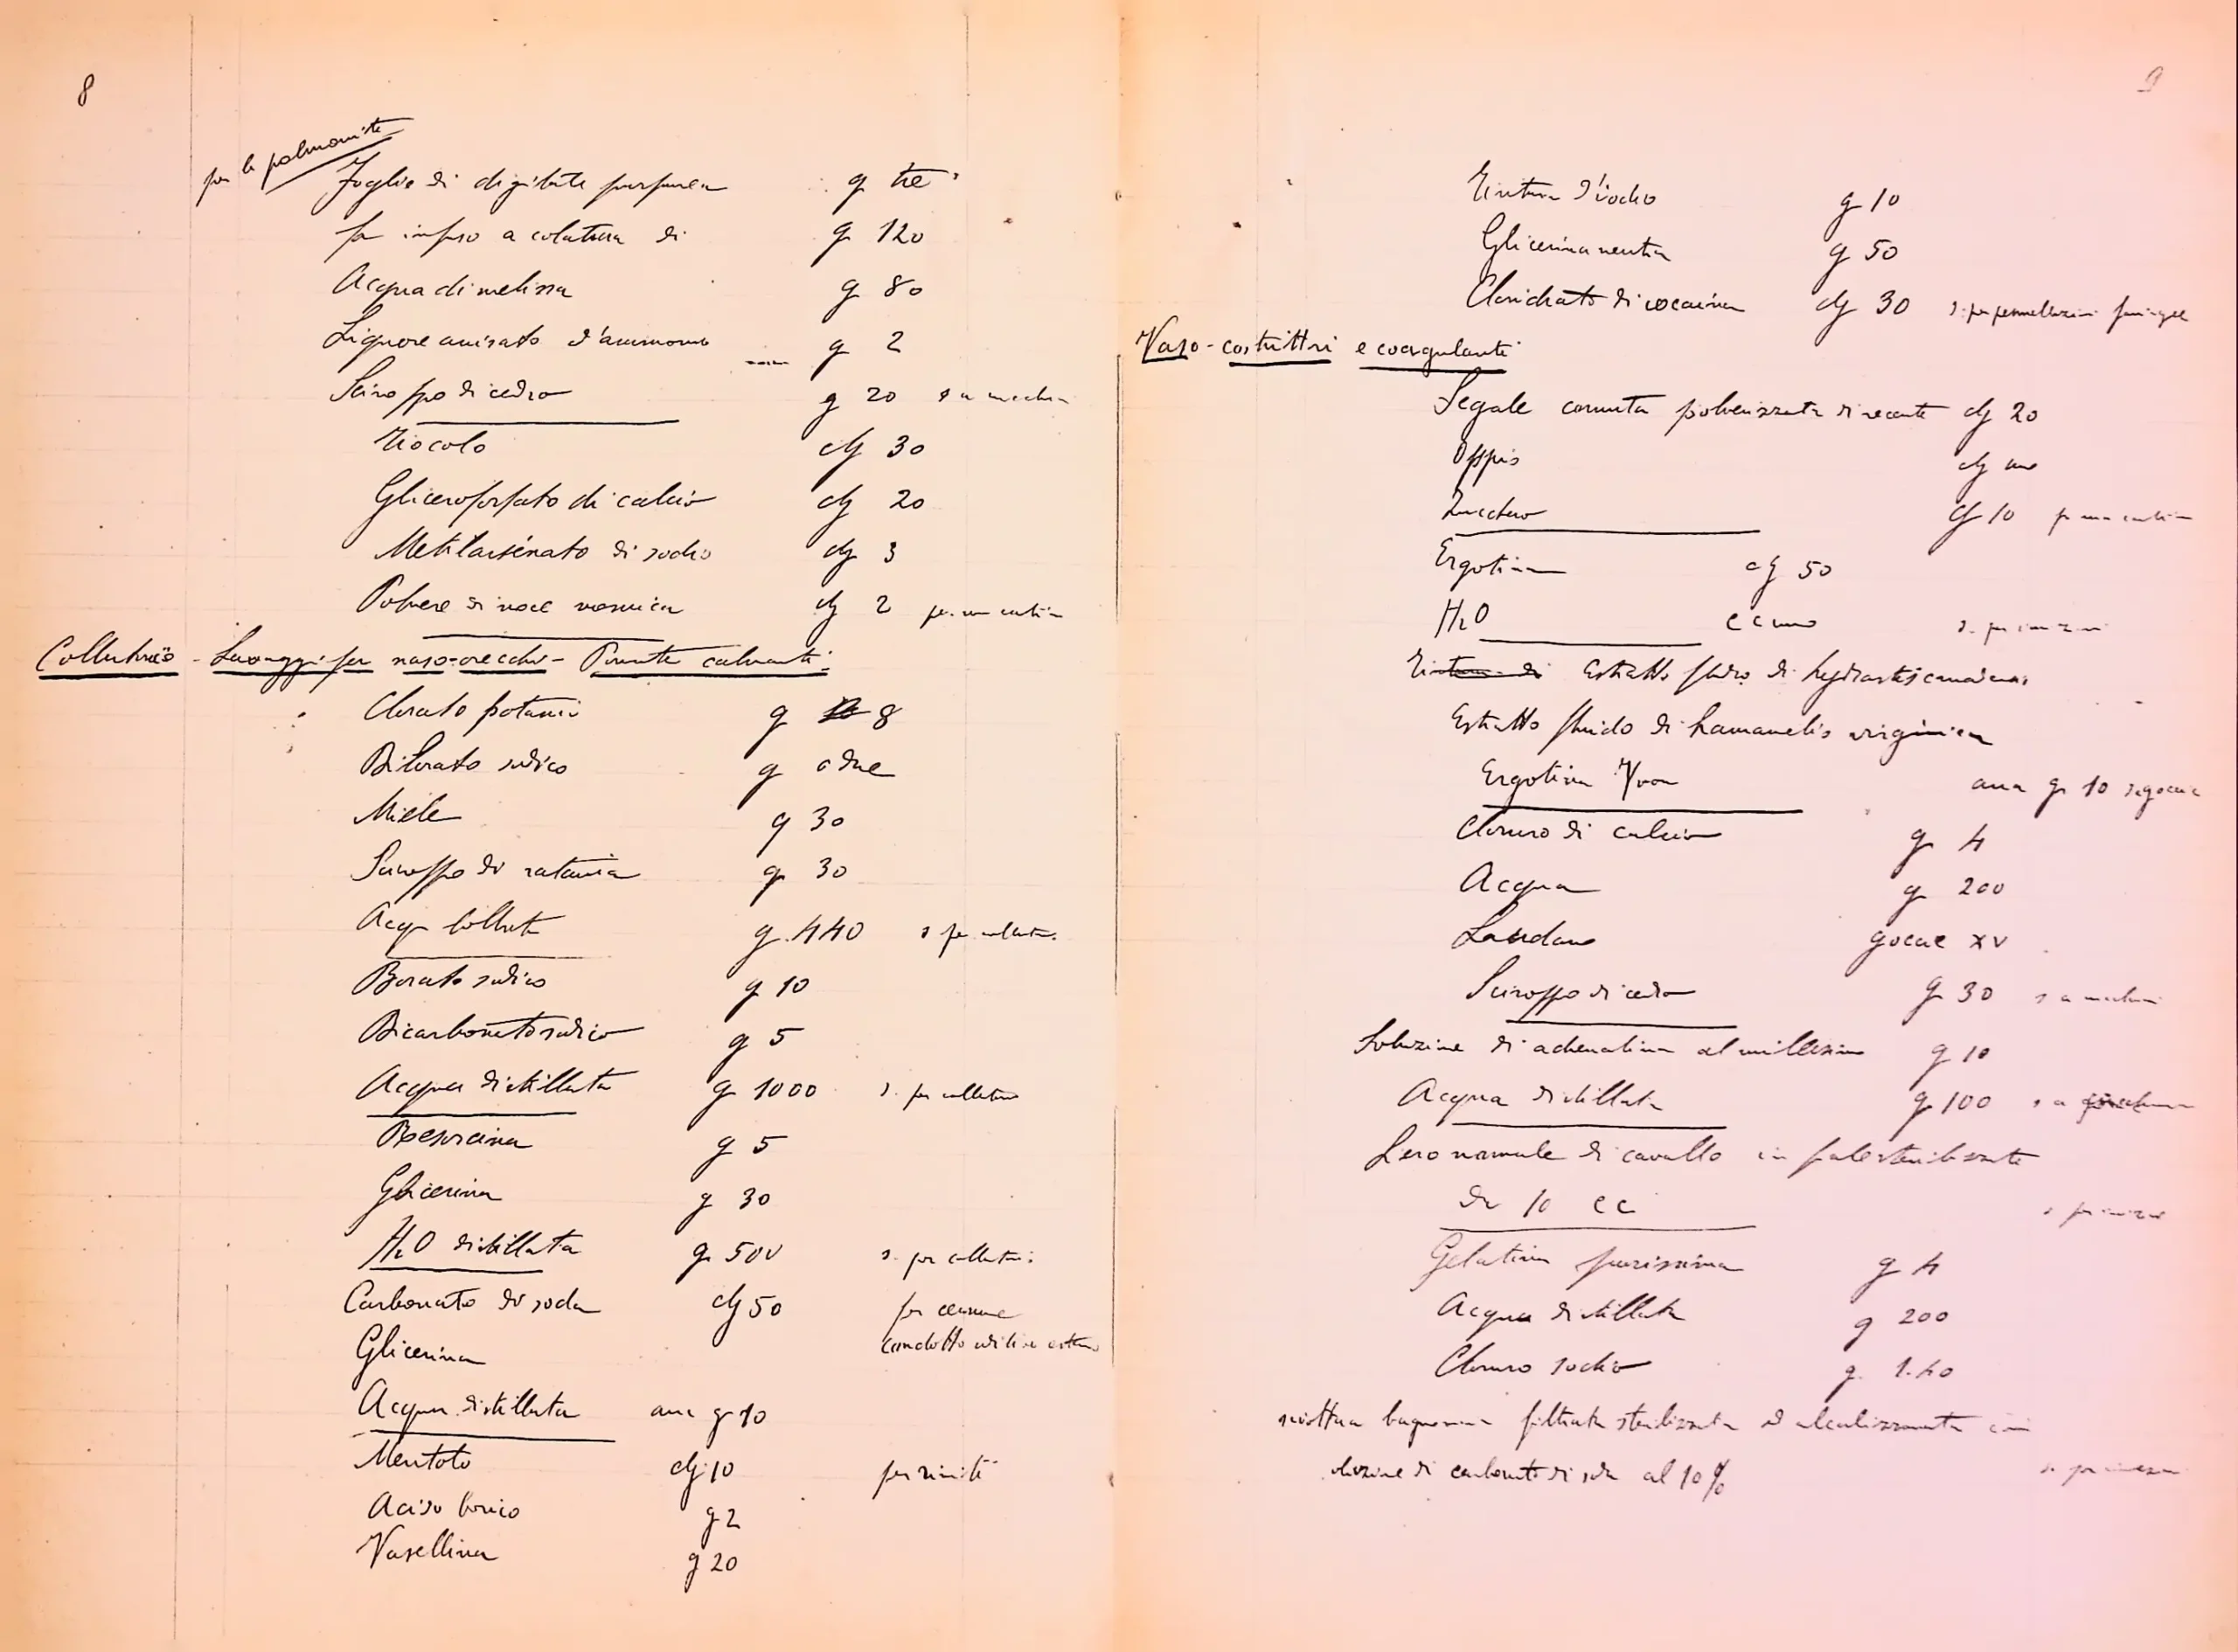 8
per la polmonite
Foglie di digitale purpurea g tre
fa infuso a colatura di g 120
Acqua di melissa g 80
Liquore anisato d'ammonio g 2
Sciroppo di cedro g 20 s a
Tiocolo cg 30
Glicerofosfato di calcio cg 20
Metilarsinato di sodio cg 3
Polvere di noce vomica cg 2 per una cartina
Collutori - Lavaggi per naso-orecchi - Pomate calmanti
Clorato potassio g 8
Biborato sodico g due
Miele g 30
Sciroppo di ratania g 30
Acqua bollita g 440 s per
Borato sodico g 10
Bicarbonato sodico g 5
Acqua distillata g 1000 s. per collutorio
Resorcina g 5
Glicerina g 30
H2O distillata g 500 s. per collutori
Carbonato di soda cg 50 per cerume
Glicerina condotto uditivo esterno
Acqua distillata ana g 10
Mentolo cg 10 per rinite
Acido borico g 2
Vasellina g 20
9
Tintura d'iodio g 10
Glicerina neutra g 50
Cloridrato di cocaina cg 30 s. per pennellazioni faringee
Vaso-costrittori e coagulanti
Segale cornuta polverizzata di recente cg 20
Oppio cg uno
Zucchero cg 10 per una cartina
Ergotina cg 50
H2O cc uno s. per iniezioni
Tintura di Estratto fluido di hydrastis canadensis
Estratto fluido di hamamelis virginica
Ergotina Yvon ana g 10 s. gocce
Cloruro di calcio g 4
Acqua g 200
Laudano gocce XV
Sciroppo di cedro g 30 s a
Soluzione di adrenalina al millesimo g 10
Acqua distillata g 100 s a
Siero normale di cavallo in fiale sterilizzate
da 10 cc s per iniezioni
Gelatina purissima g 4
Acqua distillata g 200
Cloruro sodio g. 1.40
filtrata sterilizzata ed alcalizzata con
soluzione di carbonato di soda al 10% s. per iniezioni